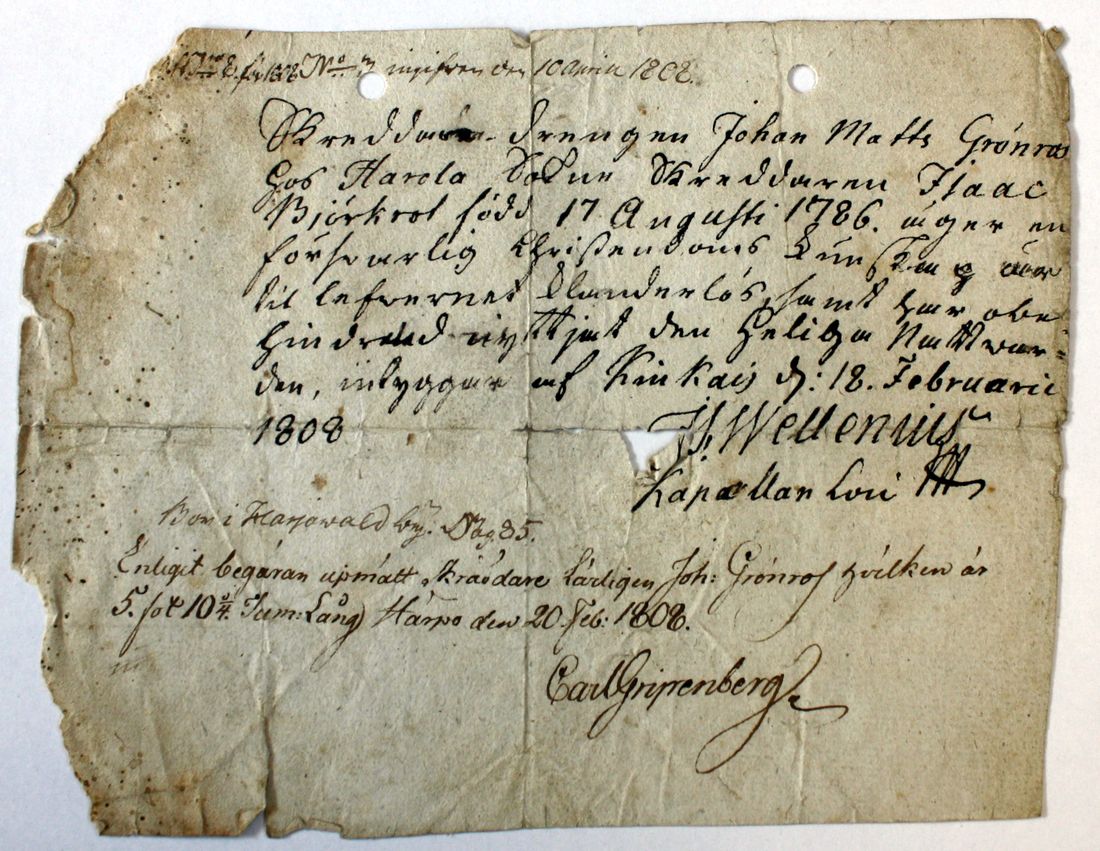 No 3 ingifven den 10 April 1808.
Skreddare drengen Johan Matts Grönros
hos Harola Sokne Skreddaren Isaac
Björkrot född 17 Augusti 1786. äger en
försvarlig Christendoms Kunskap är
til lefvernet Klanderlös, samt har obe-
hindrad nyttjat den Heliga Nattvar-
den, intyggar af Kinkais d: 18. Februarii
1808
Is. Wellenius
Kapellan Loci
Bor i Harjawald by. Pag. 85.
Enligit begäran upmätt skräddare Lärligen Joh: Grönros hvilken är
5. fot 10 3/4. Tum: Lång Harjo den 20. Feb: 1808.
Carl Gripenberg